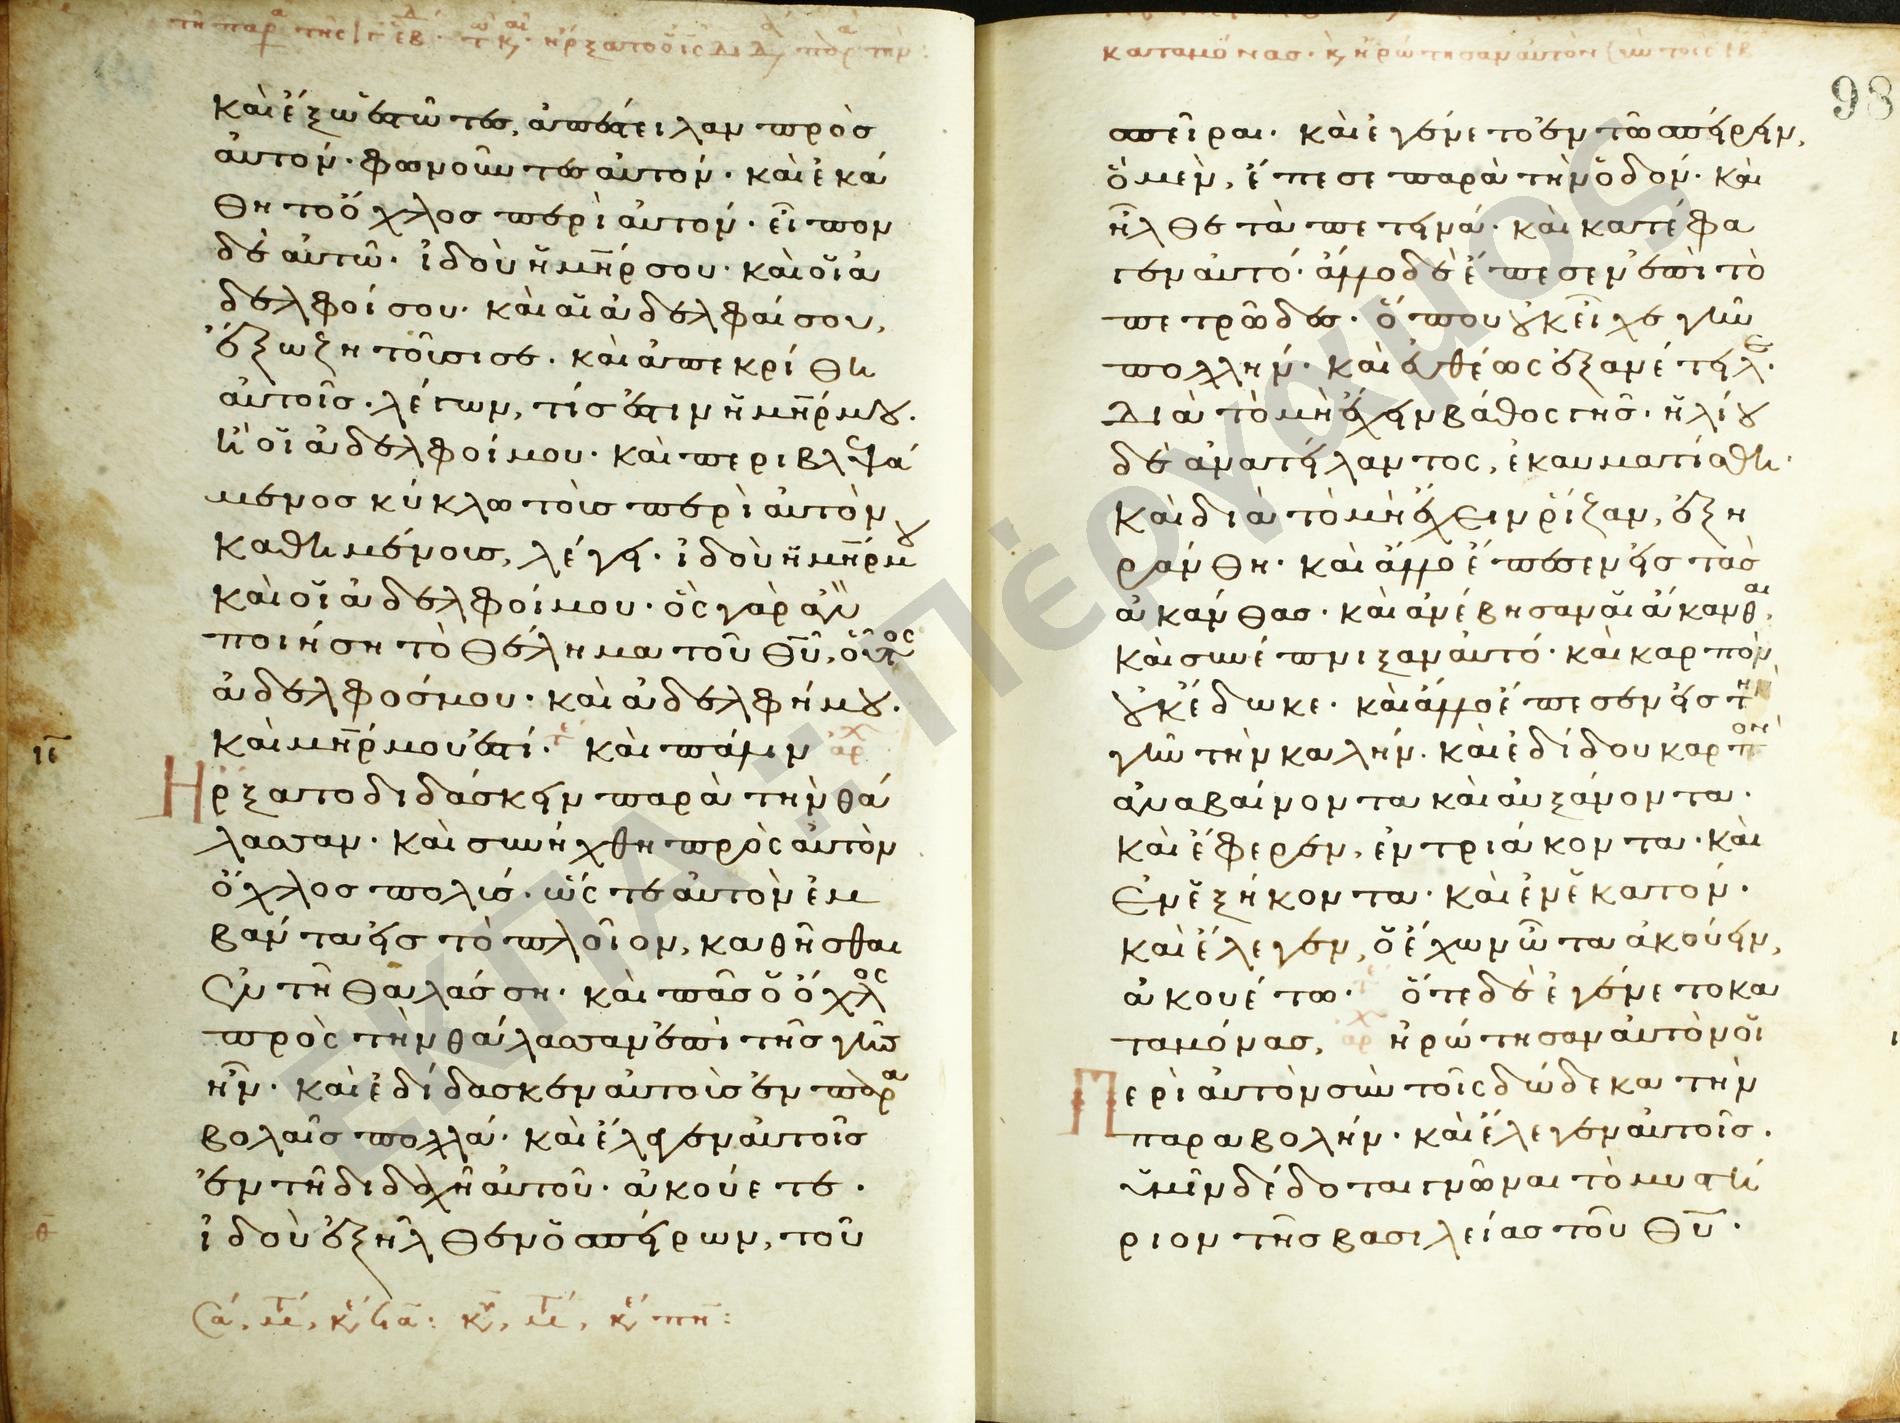 καὶ ἔξω ἑστῶτες, ἀπέστειλαν πρὸς
αὐτόν· φωνοῦντες αὐτόν· καὶ ἐκά
θητο ὄχλος περὶ αὐτόν· εἶπον
δὲ αὐτῶ· ἰδοὺ ἡ μ̅η̅ρ σου· καὶ οἱ ἀ
δελφοί σου· καὶ αἱ ἀδελφαί σου,
ἔξω ζητοῦσί σε· καὶ ἀπεκρίθη
αὐτοῖς· λέγων, τίς ἐστιν ἡ μ̅η̅ρ μου·
ἢ οἱ ἀδελφοί μου· καὶ περιβλεψά
μενος κύκλω τοὺς περὶ αὐτὸν
καθημένους, λέγει· ἰδοὺ ἡ μ̅η̅ρ μου
καὶ οἱ ἀδελφοί μου· ὃς γὰρ ἂν
ποιήση τὸ θέλημα τοῦ θ̅υ̅, οὗτος
ἀδελφός μου· καὶ ἀδελφή μου·
καὶ μ̅η̅ρ μου ἐστί· καὶ πάλιν
Ηρξατο διδάσκειν παρὰ τὴν θά
λασσαν· καὶ συνήχθη πρὸς αὐτὸν
ὄχλος πολύς· ὥστε αὐτὸν ἐμ
βάντα εἰς τὸ πλοῖον, καθῆσθαι
ἐν τῆ θαλάσση· καὶ πᾶς ὁ ὄχλος
πρὸς τὴν θάλασσαν ἐπὶ τῆς γῆς
ἦν· καὶ ἐδίδασκεν αὐτοὺς ἐν παρα
βολαῖς πολλά· καὶ ἔλεγεν αὐτοῖς
ἐν τῆ διδαχῆ αὐτοῦ· ἀκούετε·
ἰδοὺ ἐξῆλθεν ὁ σπείρων, τοῦ
98
σπεῖραι· καὶ ἐγένετο ἐν τῶ σπείρειν,
ὃ μὲν, ἔπεσε παρὰ τὴν ὁδόν· καὶ
ἦλθε τὰ πετεινά· καὶ κατέφα
γεν αὐτό· ἄλλο δὲ ἔπεσεν ἐπὶ τὸ
πετρῶδες· ὅπου οὐκ εἶχε γῆν
πολλήν· καὶ εὐθέως ἐξανέτειλε·
Διὰ τὸ μὴ ἔχειν βάθος γῆς· ἡλίου
δὲ ἀνατείλαντος, ἐκαυματίσθη·
Καὶ διὰ τὸ μὴ ἔχειν ῥίζαν, ἐξη
ράνθη· καὶ ἄλλο ἔπεσεν εἰς τὰς
ἀκάνθας· καὶ ἀνέβησαν αἱ ἄκανθαι,
καὶ συνέπνιξαν αὐτό· καὶ καρπὸν
οὐκ ἔδωκε· καὶ ἄλλο ἔπεσεν εἰς τὴν
γῆν τὴν καλήν· καὶ ἐδίδου καρπὸν
ἀναβαίνοντα καὶ αὐξάνοντα·
καὶ ἔφερεν, ἐν τριάκοντα· καὶ
ἐν ἑξήκοντα· καὶ ἐν ἑκατόν·
καὶ ἔλεγεν, ὁ ἔχων ὦτα ἀκούειν,
ἀκουέτω· ὅτε δὲ ἐγένετο κα
ταμόνας, ἠρώτησαν αὐτὸν οἱ
Περὶ αὐτὸν σὺν τοῖς δώδεκα τὴν
παραβολήν· καὶ ἔλεγεν αὐτοῖς·
ὑμῖν δέδοται γνῶναι τὸ μυστή
ριον τῆς βασιλείας τοῦ θ̅υ̅·
ΕΚΠΑ :: Πέργαμος